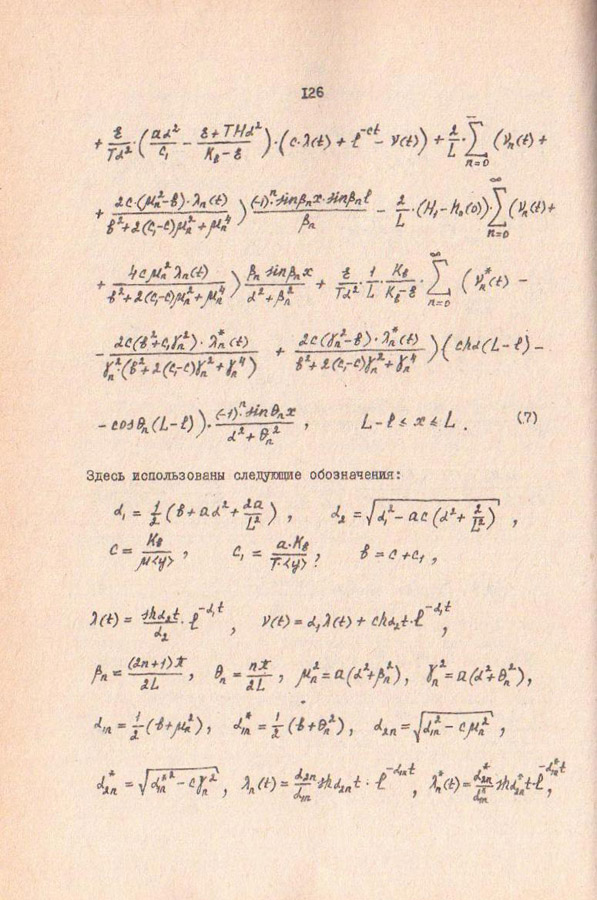 126
+ ε/(Tα²)·(aα²/c₁ − (ε+THα²)/(K_в−ε))·(c·λ(t) + ℓ^(−ct) − ν(t)) + 2/L·∑_(n=0)^∞ (ν_n(t) +
+ 2c·(μ_n²−в)·λ_n(t)/(в²+2(c₁−c)μ_n²+μ_n⁴))·(−1)ⁿ·sinβ_n x·sinβ_n ℓ/β_n − 2/L·(H₁−H₀(0))·∑_(n=0)^∞ (ν_n(t) +
+ 4cμ_n²λ_n(t)/(в²+2(c₁−c)μ_n²+μ_n⁴))·β_n sinβ_n x/(α²+β_n²) + ε/(Tα²)·1/L·K_в/(K_в−ε)·∑_(n=0)^∞ (ν_n*(t) −
− 2c(в²+c₁γ_n²)·λ_n*(t)/(γ_n²·(в²+2(c₁−c)γ_n²+γ_n⁴)) + 2c(γ_n²−в)·λ_n*(t)/(в²+2(c₁−c)γ_n²+γ_n⁴))·(chα(L−ℓ) −
− cosθ_n(L−ℓ))·(−1)ⁿ·sinθ_n x/(α²+θ_n²), L−ℓ ≤ x ≤ L. (7)
Здесь использованы следующие обозначения:
α₁ = 1/2(в+aα²+2a/L²), α₂ = √(α₁²−ac(α²+2/L²)),
c = K_в/(μ<y>), c₁ = a·K_в/(T·<y>), в = c+c₁,
λ(t) = shα₂t/α₂·ℓ^(−α₁t), ν(t) = α₁λ(t)+chα₂t·ℓ^(−α₁t),
β_n = (2n+1)π/2L, θ_n = nπ/2L, μ_n² = a(α²+β_n²), γ_n² = a(α²+θ_n²),
α₁n = 1/2(в+μ_n²), α₁n* = 1/2(в+θ_n²), α₂n = √(α₁n²−cμ_n²),
α₂n* = √(α₁n*²−cγ_n²), λ_n(t) = α₂n/α₁n shα₂n t·ℓ^(−α₁n t), λ_n*(t) = α₂n*/α₁n* shα₂n* t·ℓ^(−α₁n* t),